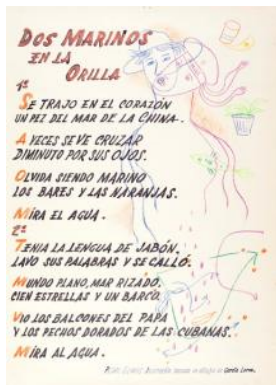 DOS MARINOS
EN LA
ORILLA
1º
SE TRAJO EN EL CORAZÓN
UN PEZ DEL MAR DE LA CHINA.
A VECES SE VE CRUZAR
DIMINUTO POR SUS OJOS.
OLVIDA SIENDO MARINO
LOS BARES Y LAS NARANJAS.
MIRA EL AGUA.
2º
TENIA LA LENGUA DE JABÓN,
LAVO SUS PALABRAS Y SE CALLÓ.
MUNDO PLANO, MAR RIZADO,
CIEN ESTRELLAS Y UN BARCO.
VIO LOS BALCONES DEL PAPA
Y LOS PECHOS DORADOS DE LAS CUBANAS.
MIRA AL AGUA.
dibujo de García Lorca.